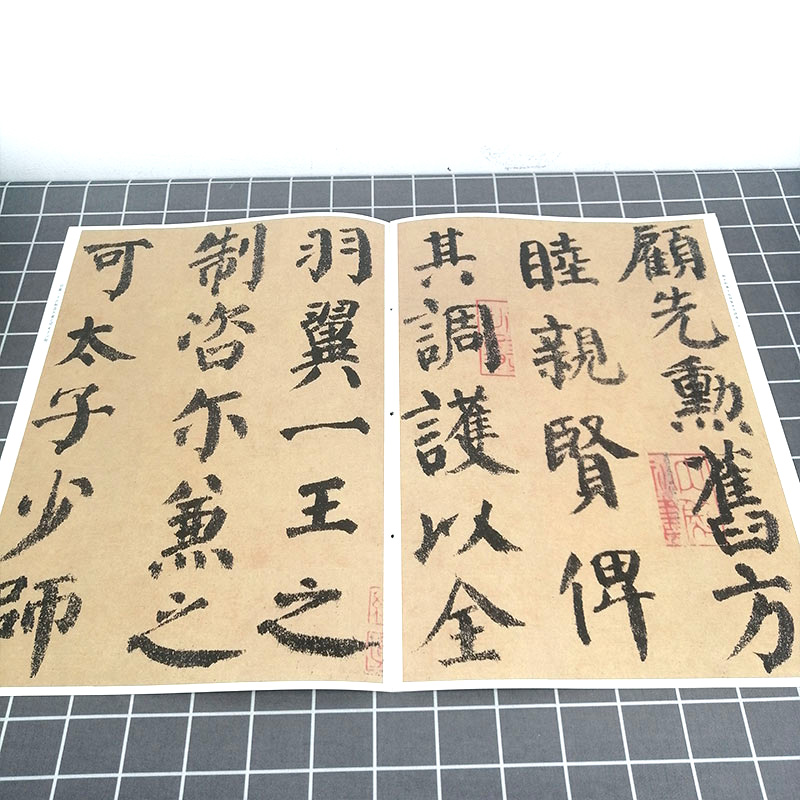 顧先勲舊方
睦親賢俾
其調護以全
羽翼一王之
制咨尔兼之
可太子少師